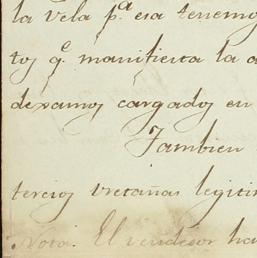 la vela pª esa tenemo
tos qᵉ manifiesta la a
dexamos cargados en
Tambien
tercios bretañas legiti
Nota. El vendedor ha